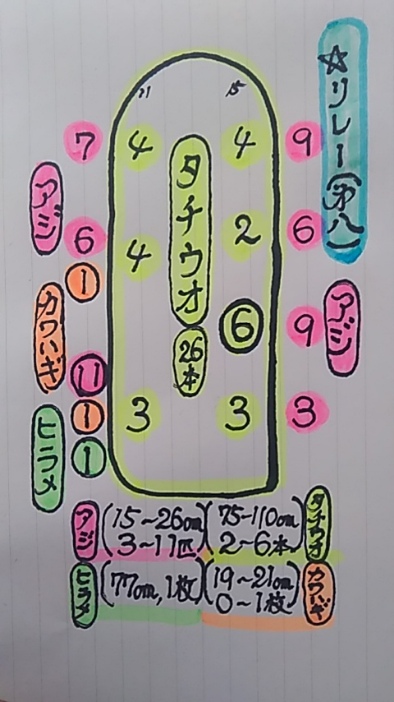 ☆リレー(第八)
21
15
7
4
タチウオ
4
9
アジ
6
4
2
6
①
カワハギ
26本
⑥
9
アジ
⑪
①
3
3
3
ヒラメ
①
アジ (15~26cm) (75~110cm) タチウオ
3~11匹 2~6本
ヒラメ (77cm,1枚) (19~21cm) カワハギ
0~1枚